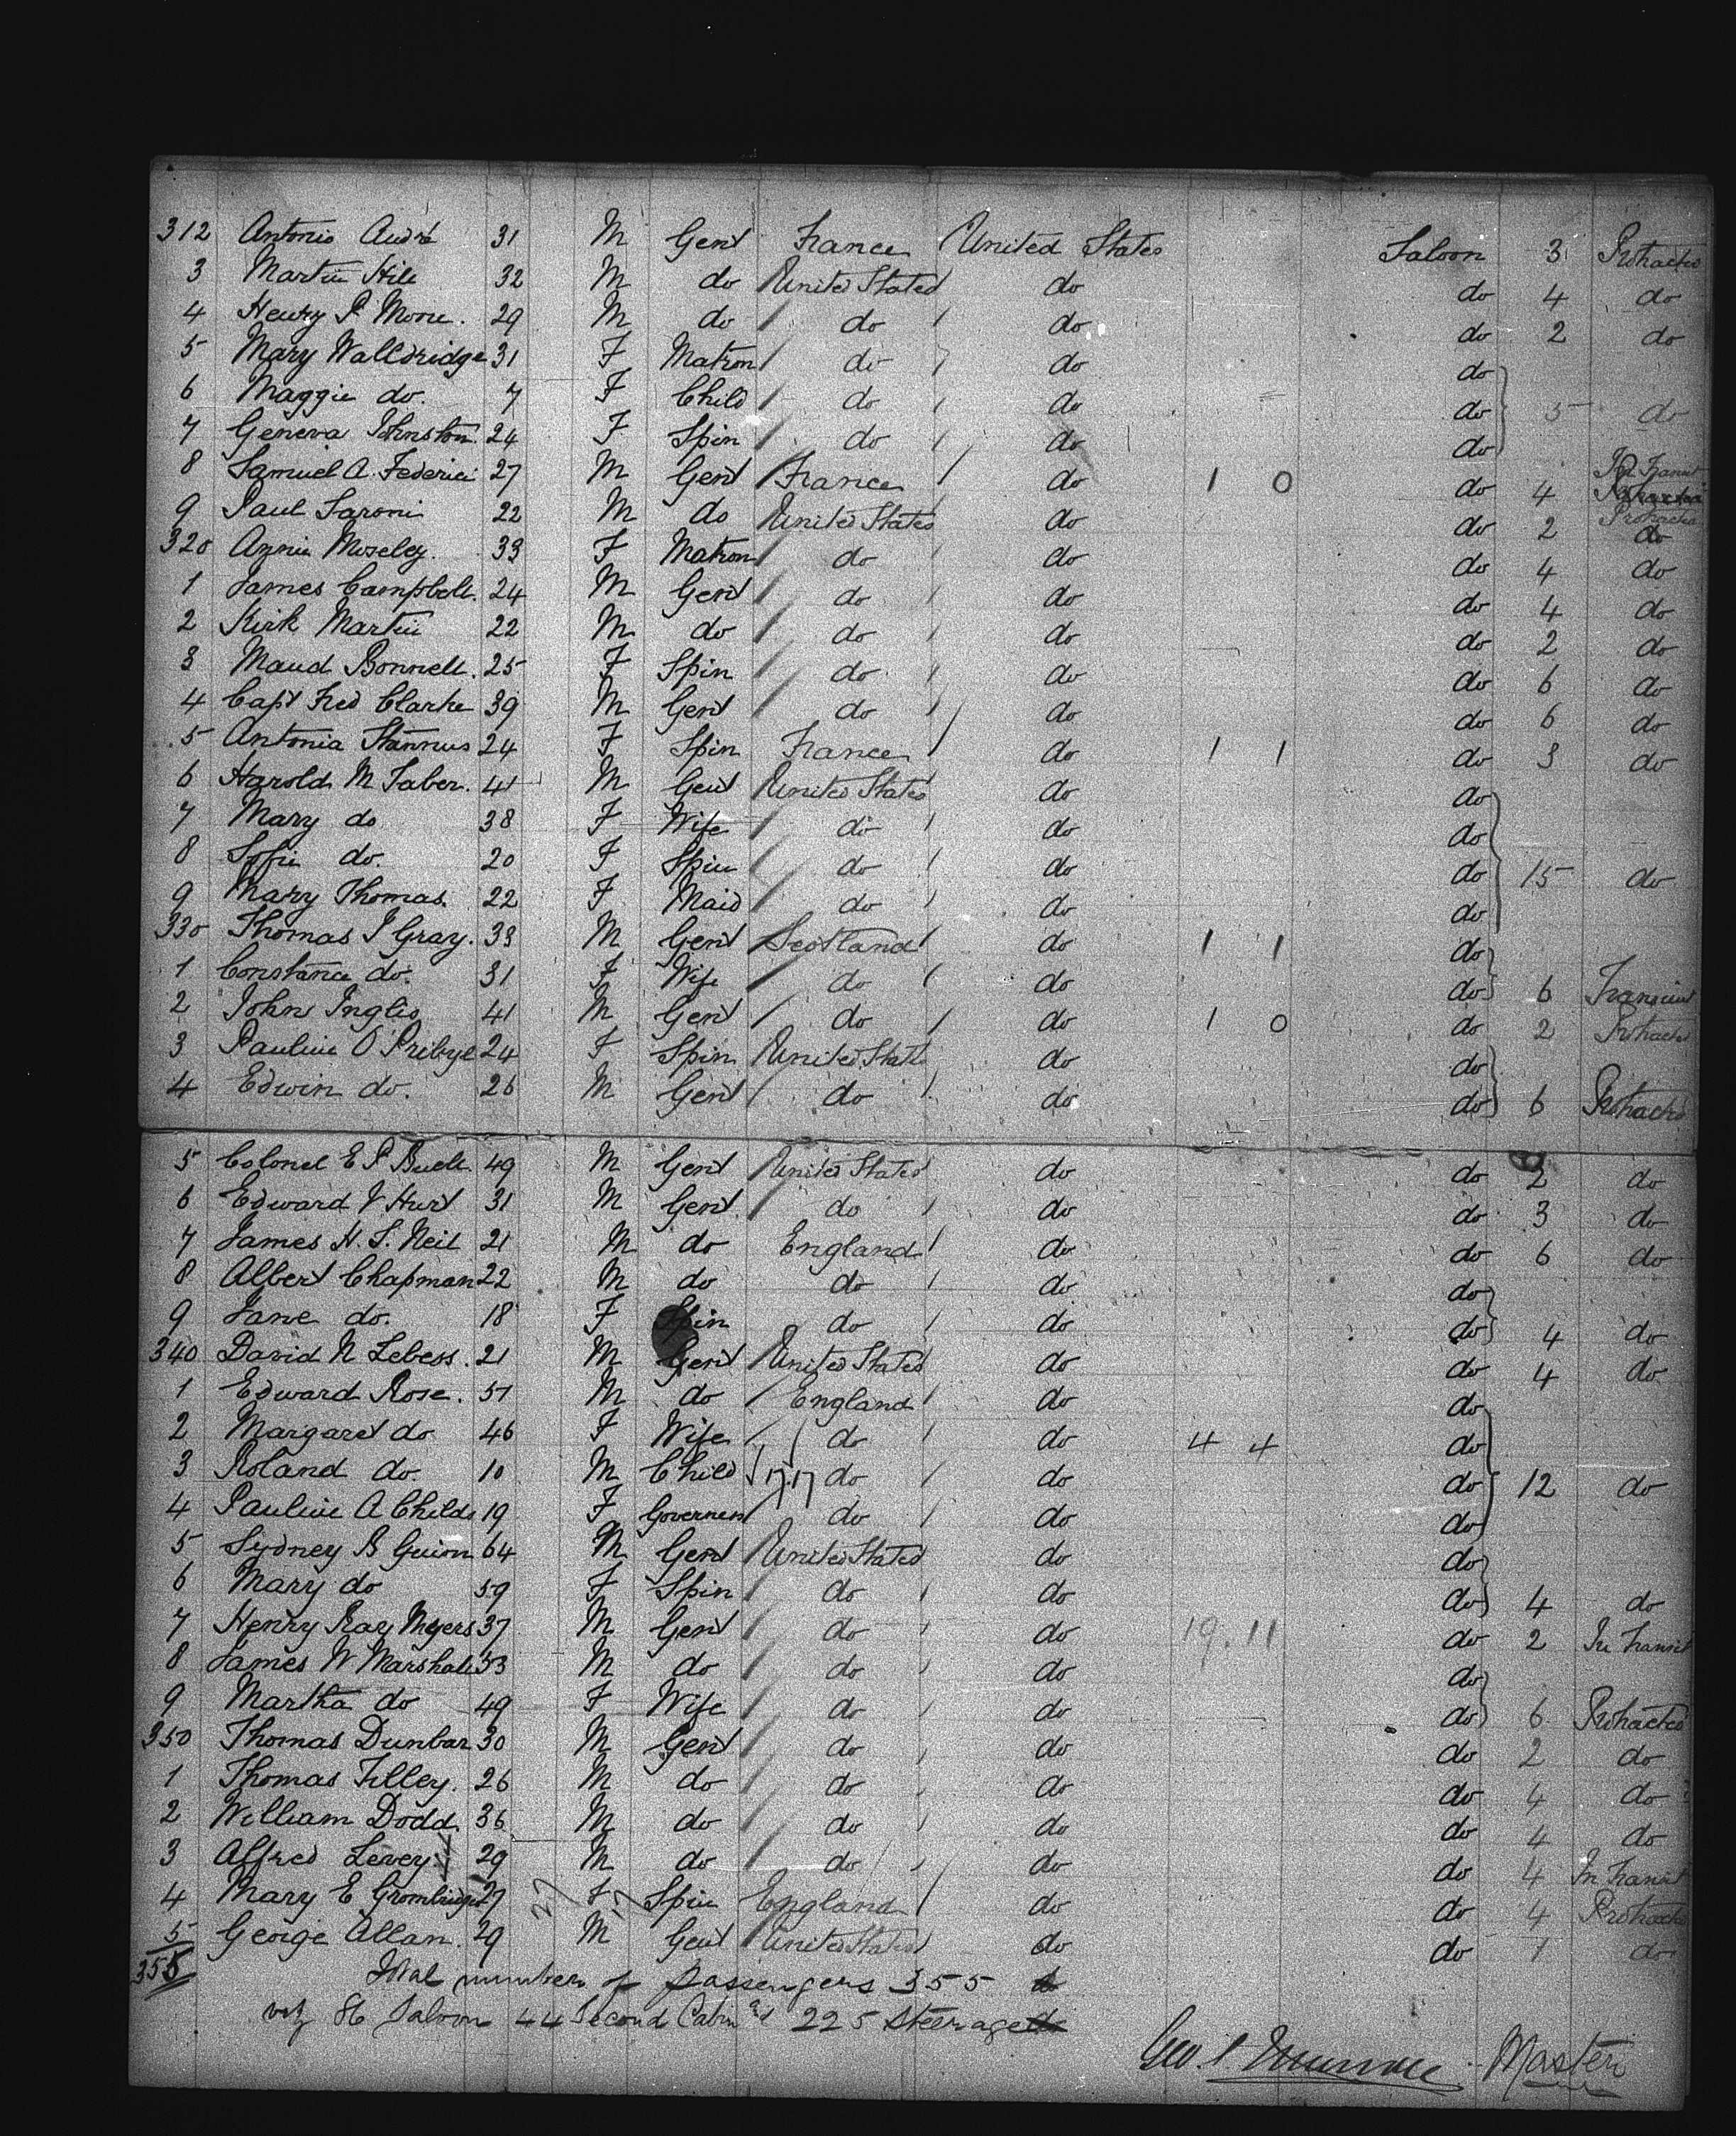 312 Antonio André 31 M Gent France United States Saloon 3 Protracted
3 Martin Hill 32 M do United States do do 4 do
4 Henry P Moore. 29 M do do do do 2 do
5 Mary Walldridge 31 F Matron do do do
6 Maggie do. 7 F Child do do do 5 do
7 Geneva Johnston. 24 F Spin do do do
8 Samuel A. Federici 27 M Gent France do 1 0 do 4 In Transit
9 Paul Saroni 22 M do United States do do 2 Protracted do
320 Annie Moseley. 33 F Matron do do do 4 do
1 James Campbell. 24 M Gent do do do 4 do
2 Kirk Martin 22 M do do do do 2 do
3 Maud Bonnell. 25 F Spin do do do 6 do
4 Capt Fred Clarke 39 M Gent do do do 6 do
5 Antonia Stannus 24 F Spin France do 1 1 do 3 do
6 Harold M Taber. 41 M Gent United States do do
7 Mary do 38 F Wife do do do
8 Sofie do. 20 F Spin do do do 15 do
9 Mary Thomas. 22 F Maid do do do
330 Thomas J Gray. 33 M Gent Scotland do 1 1 do
1 Constance do. 31 F Wife do do do 6 Transient
2 John Inglis 41 M Gent do do 1 0 do 2 Protracted
3 Pauline O Pribyl 24 F Spin United States do do
4 Edwin do. 26 M Gent do do do 6 Protracted
5 Colonel E P Buell 49 M Gent United States do do 2 do
6 Edward V Hurt 31 M Gent do do do 3 do
7 James H. S. Neil 21 M do England do do 6 do
8 Albert Chapman 22 M do do do do
9 Jane do. 18 F Spin do do do 4 do
340 David N Lebess. 21 M Gent United States do do 4 do
1 Edward Rose. 51 M do England do do
2 Margaret do 46 F Wife do do 4 4 do
3 Roland do. 10 M Child 17.17 do do do 12 do
4 Pauline A Childs 19 F Governess do do do
5 Sydney B Guion 64 M Gent United States do do
6 Mary do 59 F Spin do do do 4 do
7 Henry Ray Myers 37 M Gent do do 19.11 do 2 In Transit
8 James W Marshall 53 M do do do do
9 Martha do 49 F Wife do do do 6 Protracted
350 Thomas Dunbar 30 M Gent do do do 2 do
1 Thomas Tilley. 26 M do do do do 4 do
2 William Dodd. 36 M do do do do 4 do
3 Alfred Levey. 29 M do do do do 4 In Transit
4 Mary E Grombridge 27 F Spin England do do 4 Protracted
5 George Allan. 29 M Gent United States do do 1 do
355 Total number of passengers 355
viz 86 Saloon 44 Second Cabin & 225 Steerage
Geo. Master